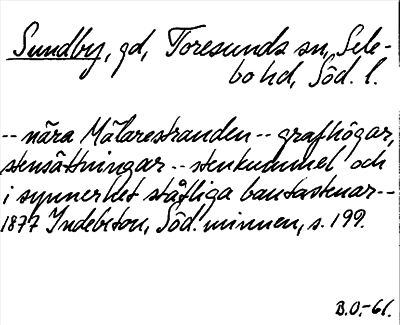 Sundby, gd, Toresunds sn, Sele-
bo hd, Söd. l.
-- nära Mälarestranden -- grafhögar,
stensättningar -- stenkummel och
i synnerhet ståtliga bautastenar --
1877 Indebetou, Söd. minnen, s. 199.
B.O.-61.